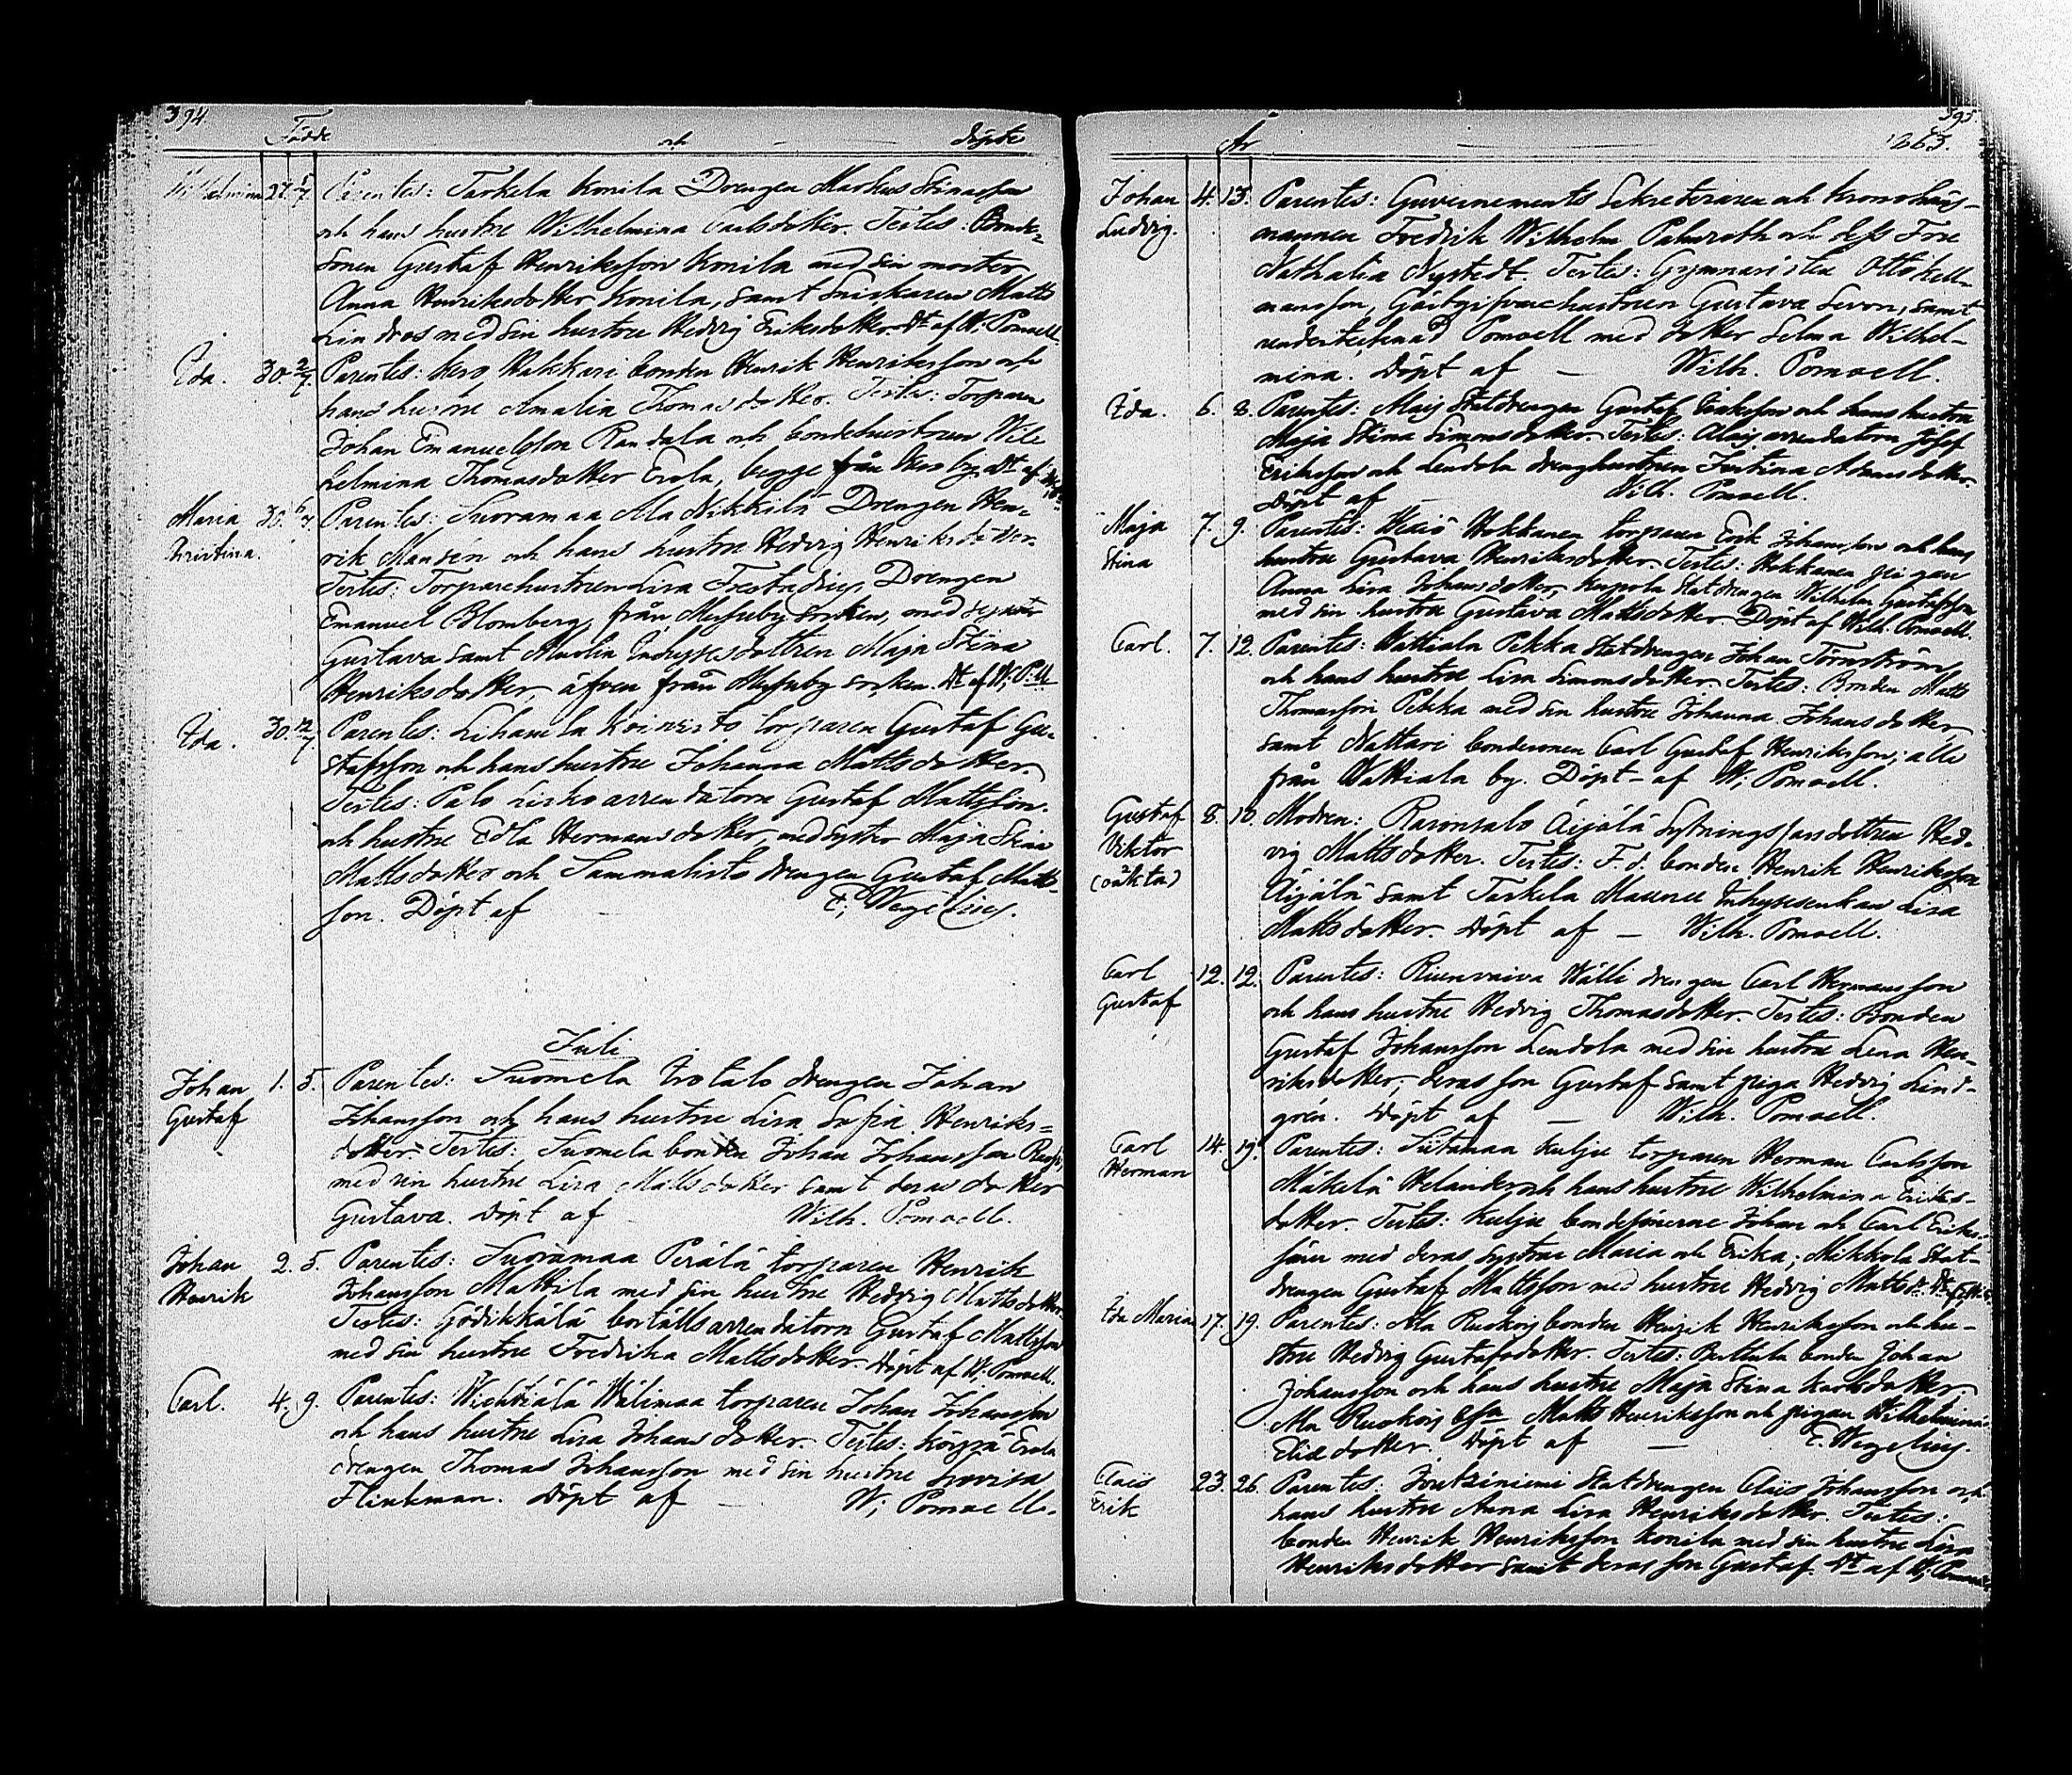 394.
Födde och döpte
Wilhelmina 28. 5/7 Parentes: Tarkela Konila Drengen Markus Stinasson
och hans hustru Wilhelmina Carlsdotter. Testes: Bonde-
sonen Gustaf Henriksson Konila med sin moster
Anna Henriksdotter Konila, samt Snickaren Matts
Lindros med sin hustru Hedvig Eriksdotter. Dt af W. Pomoell.
Ida. 30. 2/7 Parentes: Kero Hakkari bonden Henrik Henriksson och
hans hustru Amalia Thomasdotter. Testes: Torparen
Johan Emanuelsson Randala och bondehustrun Wil-
helmina Thomasdotter Erola, begge från Kero by. Dt af
Maria 30. 6/7 Parentes: Suoramaa Ala Nikkilä Drengen Hen-
Kristina. rik Mansén och hans hustru Hedvig Henriksdotter.
Testes: Torparehustrun Lisa Drengen
Emanuel Blomberg, från Messuby socken, med
Gustava samt Inhysesdottren Maja Stina
Henriksdotter, äfven från Messuby socken. Dt af W. P.ll
Ida. 30. 12/7 Parentes: Lihamla Koivisto torparen Gustaf Gu-
stafsson och hans hustru Johanna Mattsdotter.
Testes: Palo Lisko arrendatorn Gustaf Mattsson
och hustru Edla Hermansdotter, med syster Maja Stina
Mattsdotter och Sammalisto drengen Gustaf Matts-
son. Döpt af E. Wegelius.
Juli
Johan 1. 5. Parentes: Suomela Isotalo drengen Johan
Gustaf Johansson och hans hustru Lisa Sofia Henriks=
dotter. Testes: Suomela bonden Johan Johansson
med sin hustru Lisa Mattsdotter samt deras dotter
Gustava. Döpt af Wilh. Pomoell.
Johan 2. 5. Parentes: Suoramaa Perälä torparen Henrik
Henrik Johansson Mattila med sin hustru Hedvig Mattsdotter
Testes: Gödikkälä boställsarrendatorn Gustaf Mattsson
med sin hustru Fredrika Mattsdotter. Döpt af W. Pomoell.
Carl. 4. 9. Parentes: Wichtiälä Wälimaa torparen Johan Johansson
och hans hustru Lisa Johansdotter. Testes: Köyrä Erola
drengen Thomas Johansson med sin hustru Lovisa
Flinkman. Döpt af — W. Pomoell.
395.
År 1863.
Johan 4. 13. Parentes: Guvernements Sekreteraren och Kronoläns-
Ludvig. mannen Fredrik Wilhelm Palmroth och dess Fru
Nathalia Nystedt. Testes: Gymnasisten Otto Hell-
mansson, Gästgifvarehustrun Gustava Levon, samt
undertecknad Pomoell med dotter Selma Wilhel-
mina. Döpt af — Wilh. Pomoell.
Ida. 6. 8. Parentes: Alasj Statdrengen Gustaf Eriksson och hans hustru
Maja Stina Simonsdotter. Testes: Alasj arrendatorn Josef
Eriksson och Lendola drenghustrun Justina Adamsdotter.
Döpt af Wilh. Pomoell.
Maja 7. 9. Parentes: Hokkanen torparen Erik Johansson och hans
Stina hustru Gustava Henriksdotter. Testes: Hokkanen pigan
Anna Lisa Johansdotter, Statdrengen Wilhelm Gustafsson
med sin hustru Gustava Mattsdotter. Döpt af Wilh. Pomoell.
Carl. 7. 12. Parentes: Wattiala Pekka Statdrengen Johan Törnström
och hans hustru Lisa Simonsdotter. Testes: Bonden Matts
Thomasson Pekka med sin hustru Johanna Johansdotter,
samt Nattari bondesonen Carl Gustaf Henriksson; alla
från Wattiala by. Döpt af W. Pomoell.
Gustaf 8. 10. Modren: Raronsalo Äijälä Sytningsfarsdottren Hed-
Viktor vig Mattsdotter. Testes: F. d. bonden Henrik Henriksson
(oäkta) Äijälä samt Tarkela Inhysesenkan Lisa
Mattsdotter. Döpt af — Wilh. Pomoell.
Carl 12. 12. Parentes: Riuenvaiva Wälli drengen Carl Hermansson
Gustaf och hans hustru Hedvig Thomasdotter. Testes: Bonden
Gustaf Johansson Lendola med sin hustru Lena Hen-
riksdotter; deras son Gustaf samt piga Hedvig Lind-
grén. Döpt af — Wilh. Pomoell.
Carl 14. 19. Parentes: Siitamaa Kulju torparen Herman Carlsson
Herman Mäkelä Helander och hans hustru Wilhelmina Eriks-
dotter. Testes: Kulju bondesönerne Johan och Carl Eriks-
söner med deras systrar Maria och Erika; Mikkola Stat-
drengen Gustaf Mattsson med hustru Hedvig Mattsdr. Dt af
Ida Maria 17. 19. Parentes: Ala Ruokois bonden Henrik Henriksson och hu-
stru Hedvig Gustafsdotter. Testes: Bonden Johan
Johansson och hans hustru Maja Stina Karlsdotter;
Ala Ruokois Matts Henriksson och pigan Wilhelmina
Eliedotter. Döpt af — E. Wegelius.
Claës 23. 26. Parentes: Joutsiniemi Statdrengen Claës Johansson och
Erik hans hustru Anna Lisa Henriksdotter. Testes:
bonden Henrik Henriksson Konila med sin hustru Lisa
Henriksdotter samt deras son Gustaf. Dt af W. Pomoell.